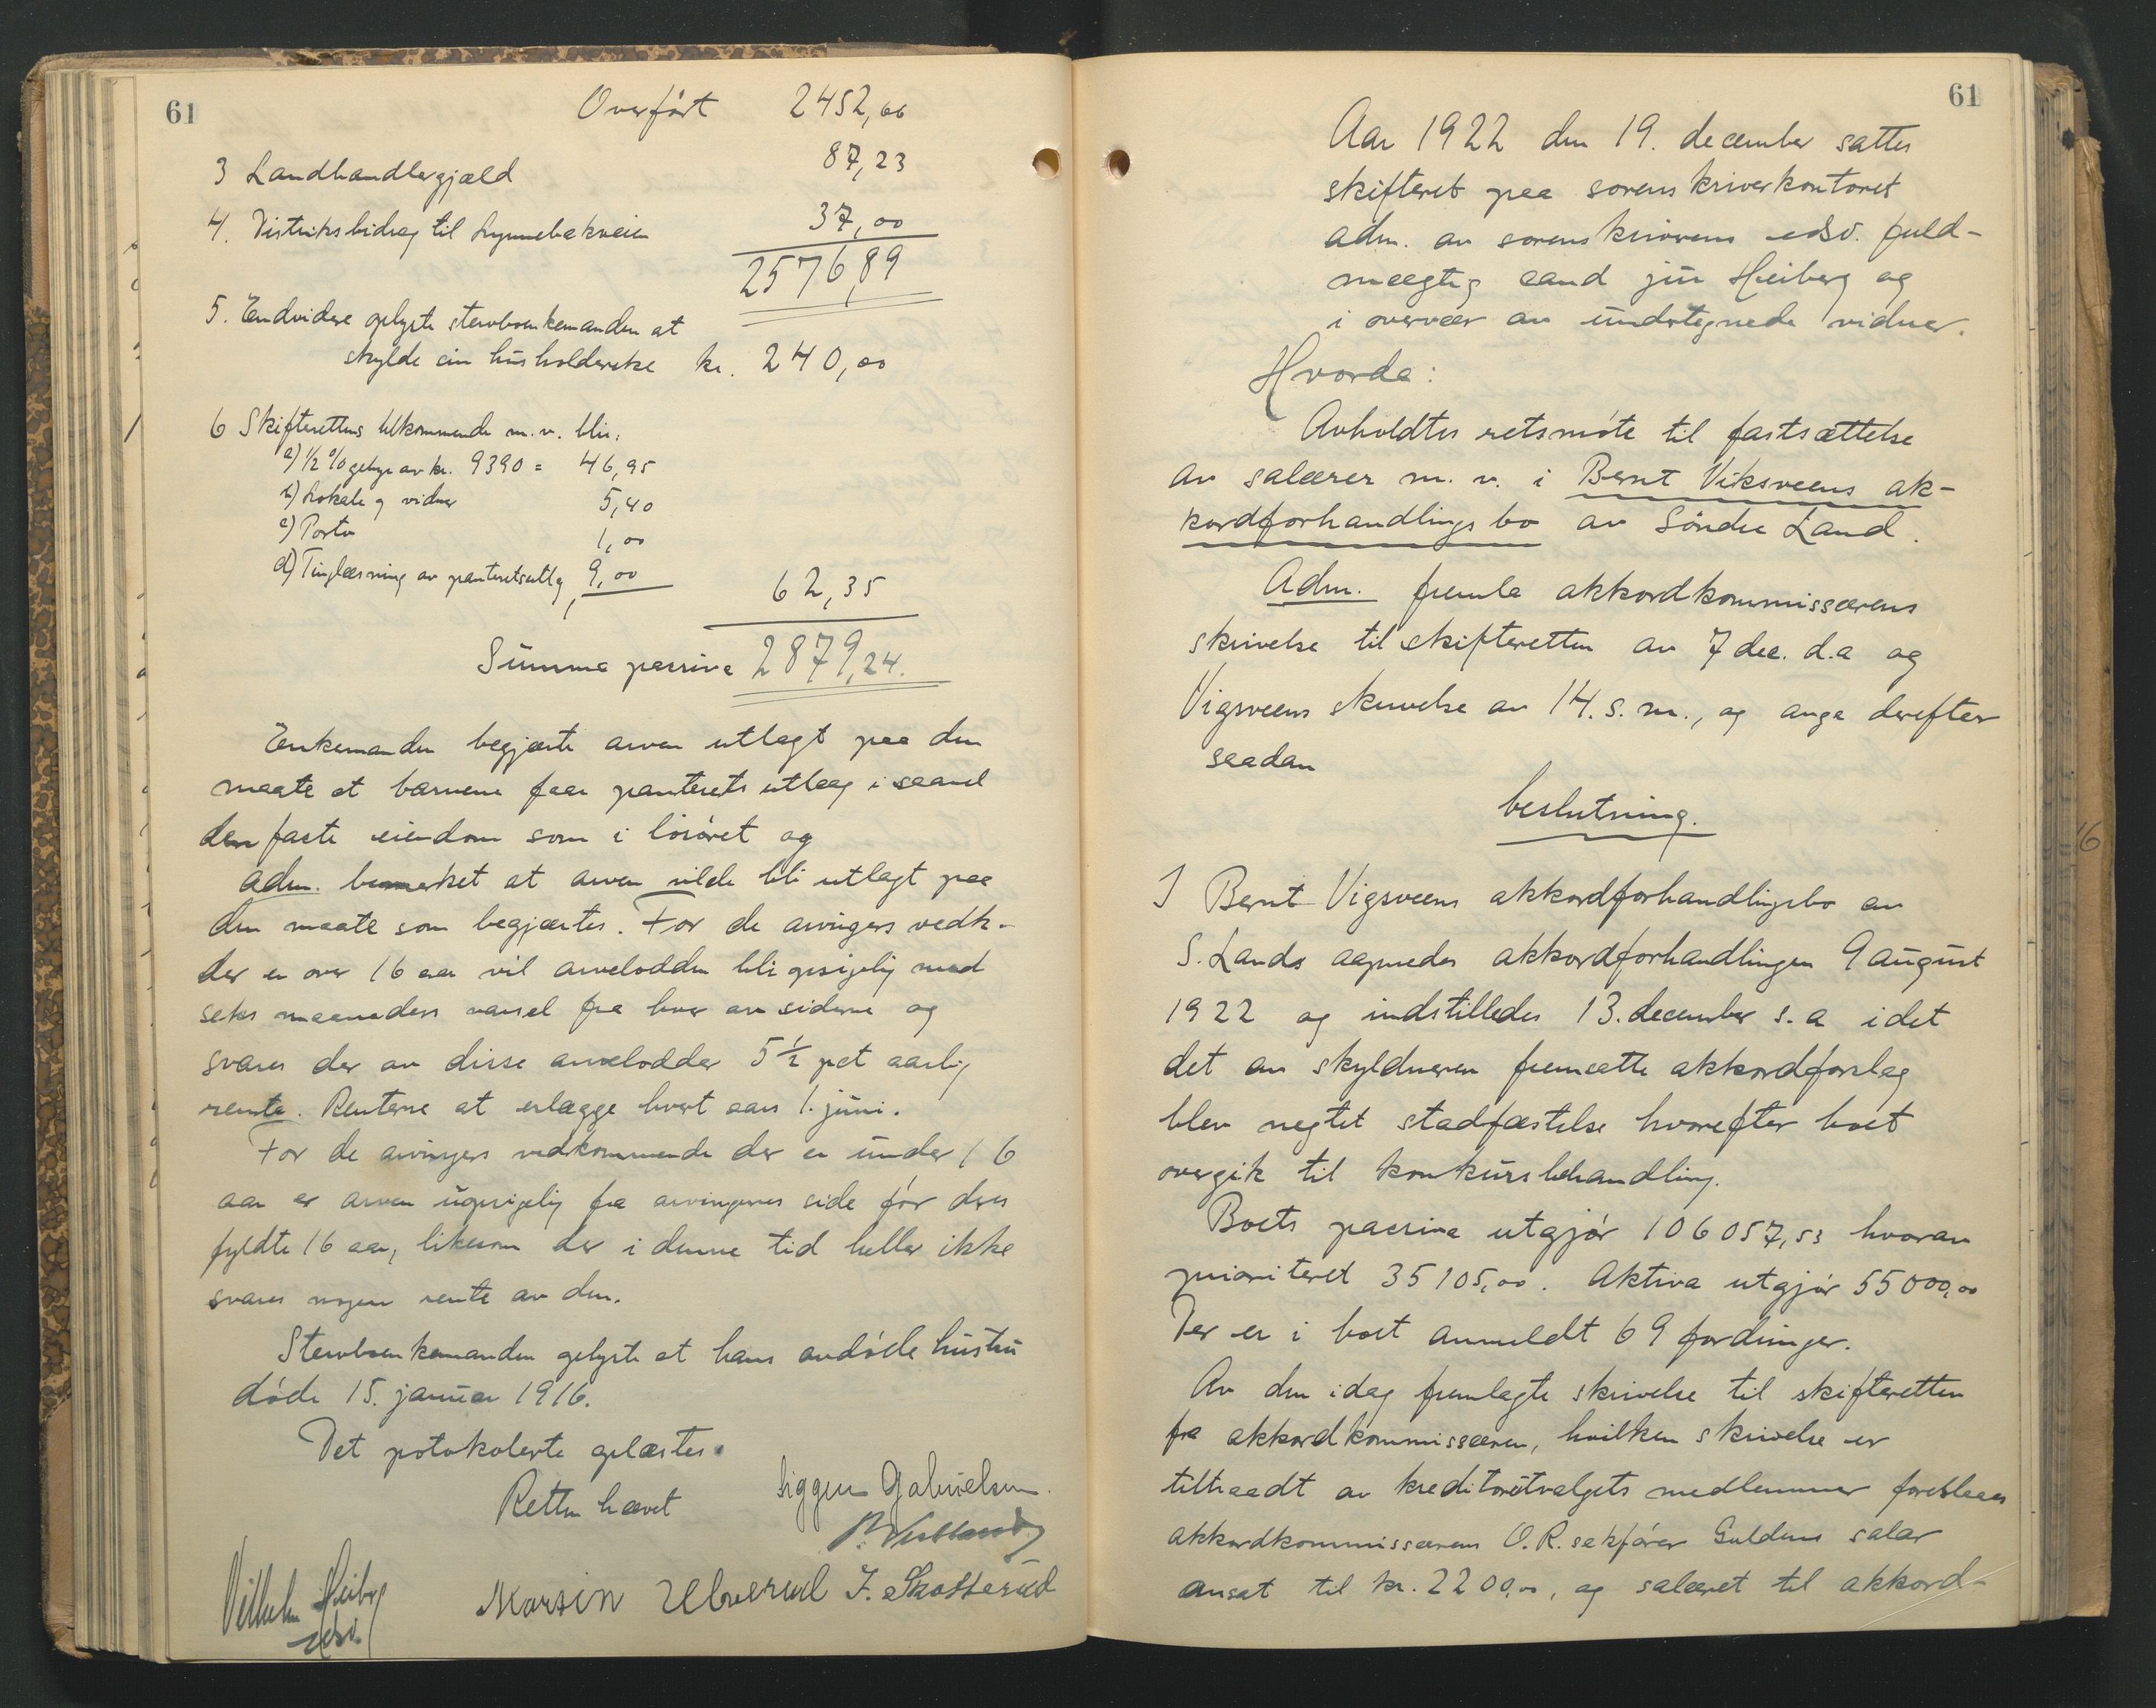 61
Overført 2452,66
3 Landhandlergjæld 87,23
4. Distriksbidrag til Lynnebakveien 37,00
2576,89
5. Endvidere oplyste stervboenkemanden at
skylde sin husholderske kr. 240,00
6 Skifterettens tilkommende m.v. blir:
a) 1/2 % gebyr av kr. 9390 = 46,95
b) Lokale og vidner 5,40
c) Porto 1,00
d) Tinglæsning av panteretsutlæg, 9,00
62,35
Summa passiva 2879,24.
Enkemanden begjærte arven utlagt paa den
maate at barnene faar panterets utlæg i saavel
den faste eiendom som i løsøret og
adm. bemerket at arven vilde bli utlagt paa
den maate som begjærtes. For de arvingers vedk.
der er over 16 aar vil arvelodden bli opsigelig med
seks maaneders varsel fra hver av siderne og
svares der av disse arvelodder 5 1/2 pct aarlig
rente. Renterne at erlægge hvert aars 1. juni.
For de arvingers vedkommende der er under 16
aar er arven uopsigelig fra arvingenes side før deres
fyldte 16 aar, likesom der i denne tid heller ikke
svares nogen rente av den.
Stervboenkemanden oplyste at hans avdøde hustru
døde 15. januar 1916.
Det protokolerte oplæstes.
Retten hævet
Siggen Gabrielsen.
Vilhelm Heiberg
edsv.
Martin Ulverud J. Skøtterud
61
Aar 1922 den 19. december sattes
skifteret paa sorenskriverkontoret
adm. av sorenskriverens edsv. fuld-
mægtig cand jur Heiberg og
i overvær av undertegnede vidner.
Hvorda:
Avholdtes retsmøte til fastsættelse
av salærer m. v. i Bernt Viksveens ak-
kordforhandlings bo av Søndre Land.
Adm. fremla akkordkommissærens
skrivelse til skifteretten av 7 dec. d.a og
Vigsveens skrivelse av 14. s. m., og avga derefter
saadan
beslutning.
I Bernt Vigsveens akkordforhandlingsbo av
S. Lands aapnedes akkordforhandlingen 9 august
1922 og indstilledes 13. december s. a idet
det av skyldneren fremsatte akkordforslag
blev negtet stadfæstelse hvorefter boet
overgik til konkursbehandling.
Boets passiva utgjør 106057,53 hvorav
prioritert 35105,00. Aktiva utgjør 55000,00
Der er i boet anmeldt 69 fordringer.
Av den idag fremlagte skrivelse til skifteretten
fra akkordkommissæren, hvilken skrivelse er
tiltraadt av kreditorutvalgets medlemmer foreslaaes
akkordkommissærens O. R. sakfører Guldens salær
ansat til kr. 2200,00, og salæret til akkord-
16